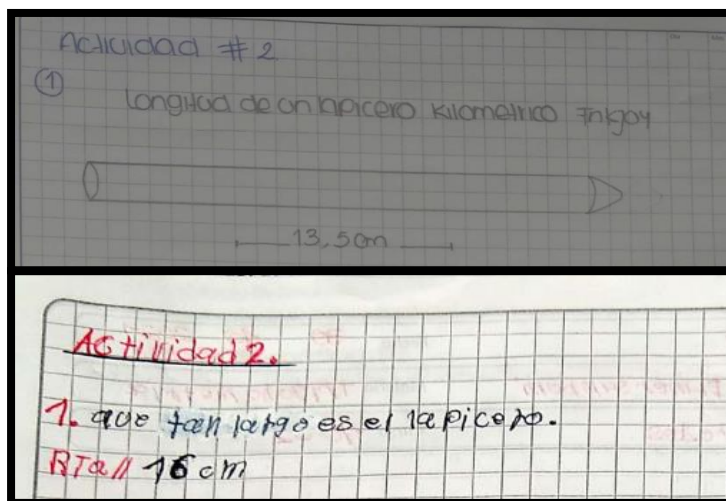 Actividad #2
①
Longitud de un lapicero Kilometrico
13,5cm
Actividad 2.
1. que tan largo es el lapicero.
RTa// 16 cm